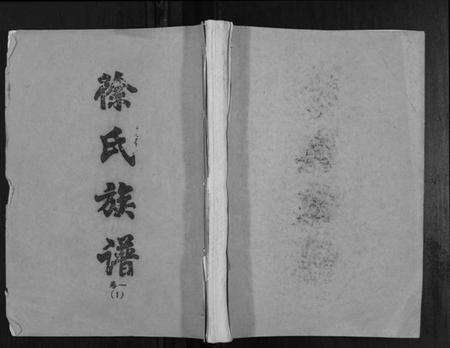 徐氏族谱
卷一
(1)